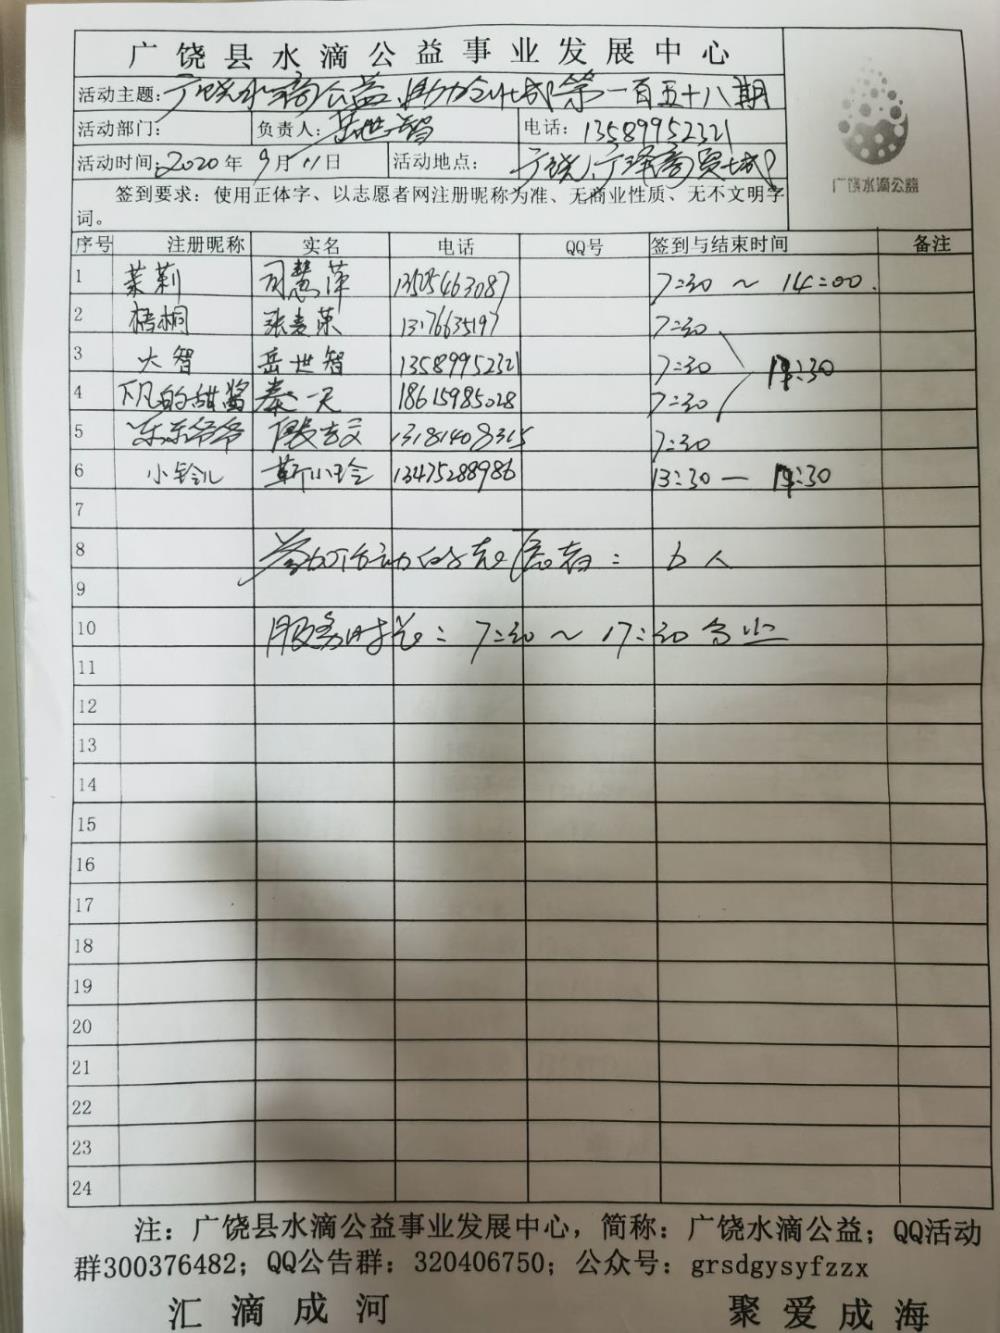 广饶县水滴公益事业发展中心
活动主题：广饶水滴公益，助力创城第一百五十八期
活动部门： 负责人：岳世智 电话：13589952321
活动时间：2020年9月11日 活动地点：广饶广泽商贸城
广饶水滴公益
签到要求：使用正体字、以志愿者网注册昵称为准、无商业性质、无不文明字
词。
序号 注册昵称 实名 电话 QQ号 签到与结束时间 备注
1 茉莉 司慧萍 13505463087 7:30 ~ 14:00.
2 梧桐 张麦荣 7:30
3 大智 岳世智 13589952321 7:30 17:30
4 下凡的甜酱 秦一天 18615985028 7:30
5 东东爷爷 13181408315 7:30
6 小铃儿 靳小玲 13475288986 13:30 — 17:30
7
8 参加活动的志愿者：6人
9
10 服务时长：7:30 ~ 17:30
11
12
13
14
15
16
17
18
19
20
21
22
23
24
注：广饶县水滴公益事业发展中心，简称：广饶水滴公益；QQ活动
群300376482；QQ公告群：320406750；公众号：grsdgysyfzzx
汇滴成河 聚爱成海